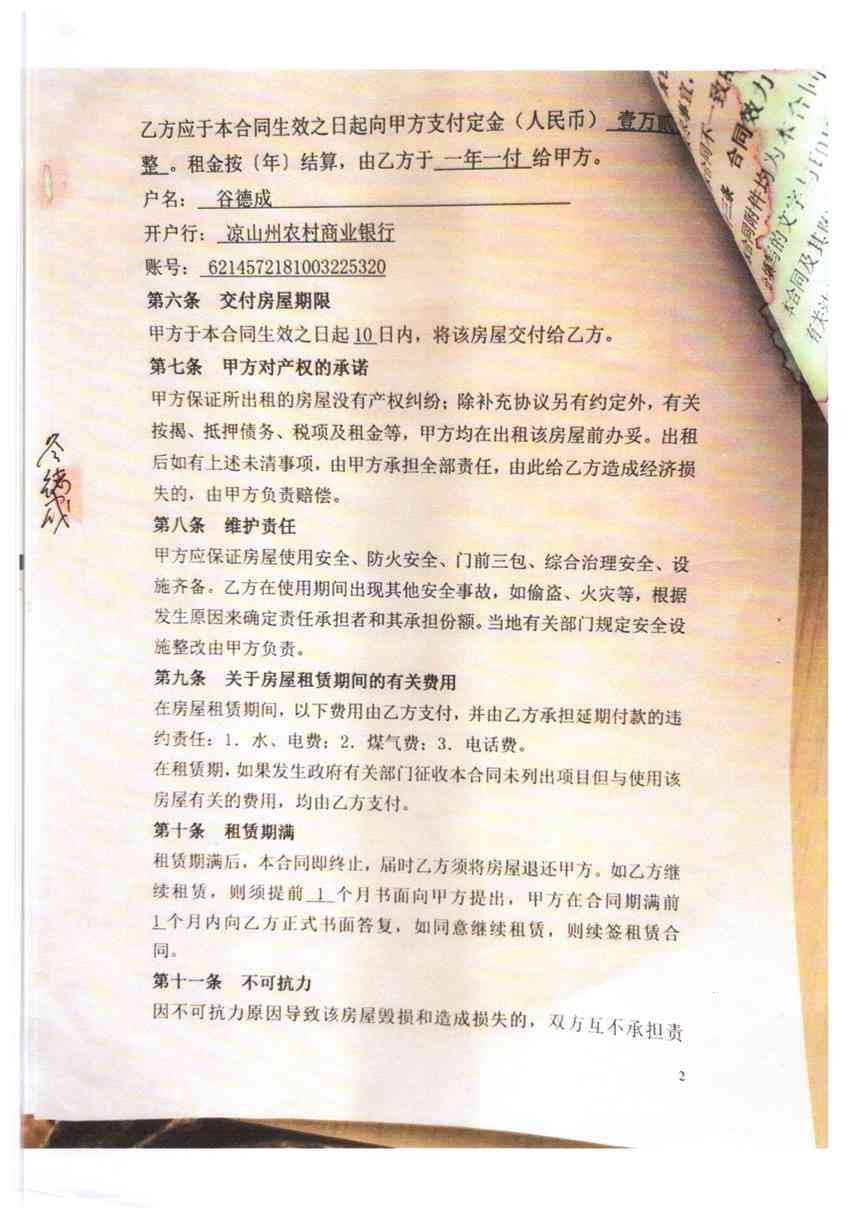 乙方应于本合同生效之日起向甲方支付定金（人民币） 壹万贰
整 。租金按〔年〕结算，由乙方于 一年一付 给甲方。
户名： 谷德成
开户行： 凉山州农村商业银行
账号： 6214572181003225320
第六条 交付房屋期限
甲方于本合同生效之日起 10 日内，将该房屋交付给乙方。
第七条 甲方对产权的承诺
甲方保证所出租的房屋没有产权纠纷；除补充协议另有约定外，有关
按揭、抵押债务、税项及租金等，甲方均在出租该房屋前办妥。出租
后如有上述未清事项，由甲方承担全部责任，由此给乙方造成经济损
失的，由甲方负责赔偿。
第八条 维护责任
甲方应保证房屋使用安全、防火安全、门前三包、综合治理安全、设
施齐备。乙方在使用期间出现其他安全事故，如偷盗、火灾等，根据
发生原因来确定责任承担者和其承担份额。当地有关部门规定安全设
施整改由甲方负责。
第九条 关于房屋租赁期间的有关费用
在房屋租赁期间，以下费用由乙方支付，并由乙方承担延期付款的违
约责任：1．水、电费；2．煤气费；3．电话费。
在租赁期，如果发生政府有关部门征收本合同未列出项目但与使用该
房屋有关的费用，均由乙方支付。
第十条 租赁期满
租赁期满后，本合同即终止，届时乙方须将房屋退还甲方。如乙方继
续租赁，则须提前 1 个月书面向甲方提出，甲方在合同期满前
1个月内向乙方正式书面答复，如同意继续租赁，则续签租赁合
同。
第十一条 不可抗力
因不可抗力原因导致该房屋毁损和造成损失的，双方互不承担责
2
不一致
合同效力
合同附件均为本合同
的文字与印
本合同及其附
有关法